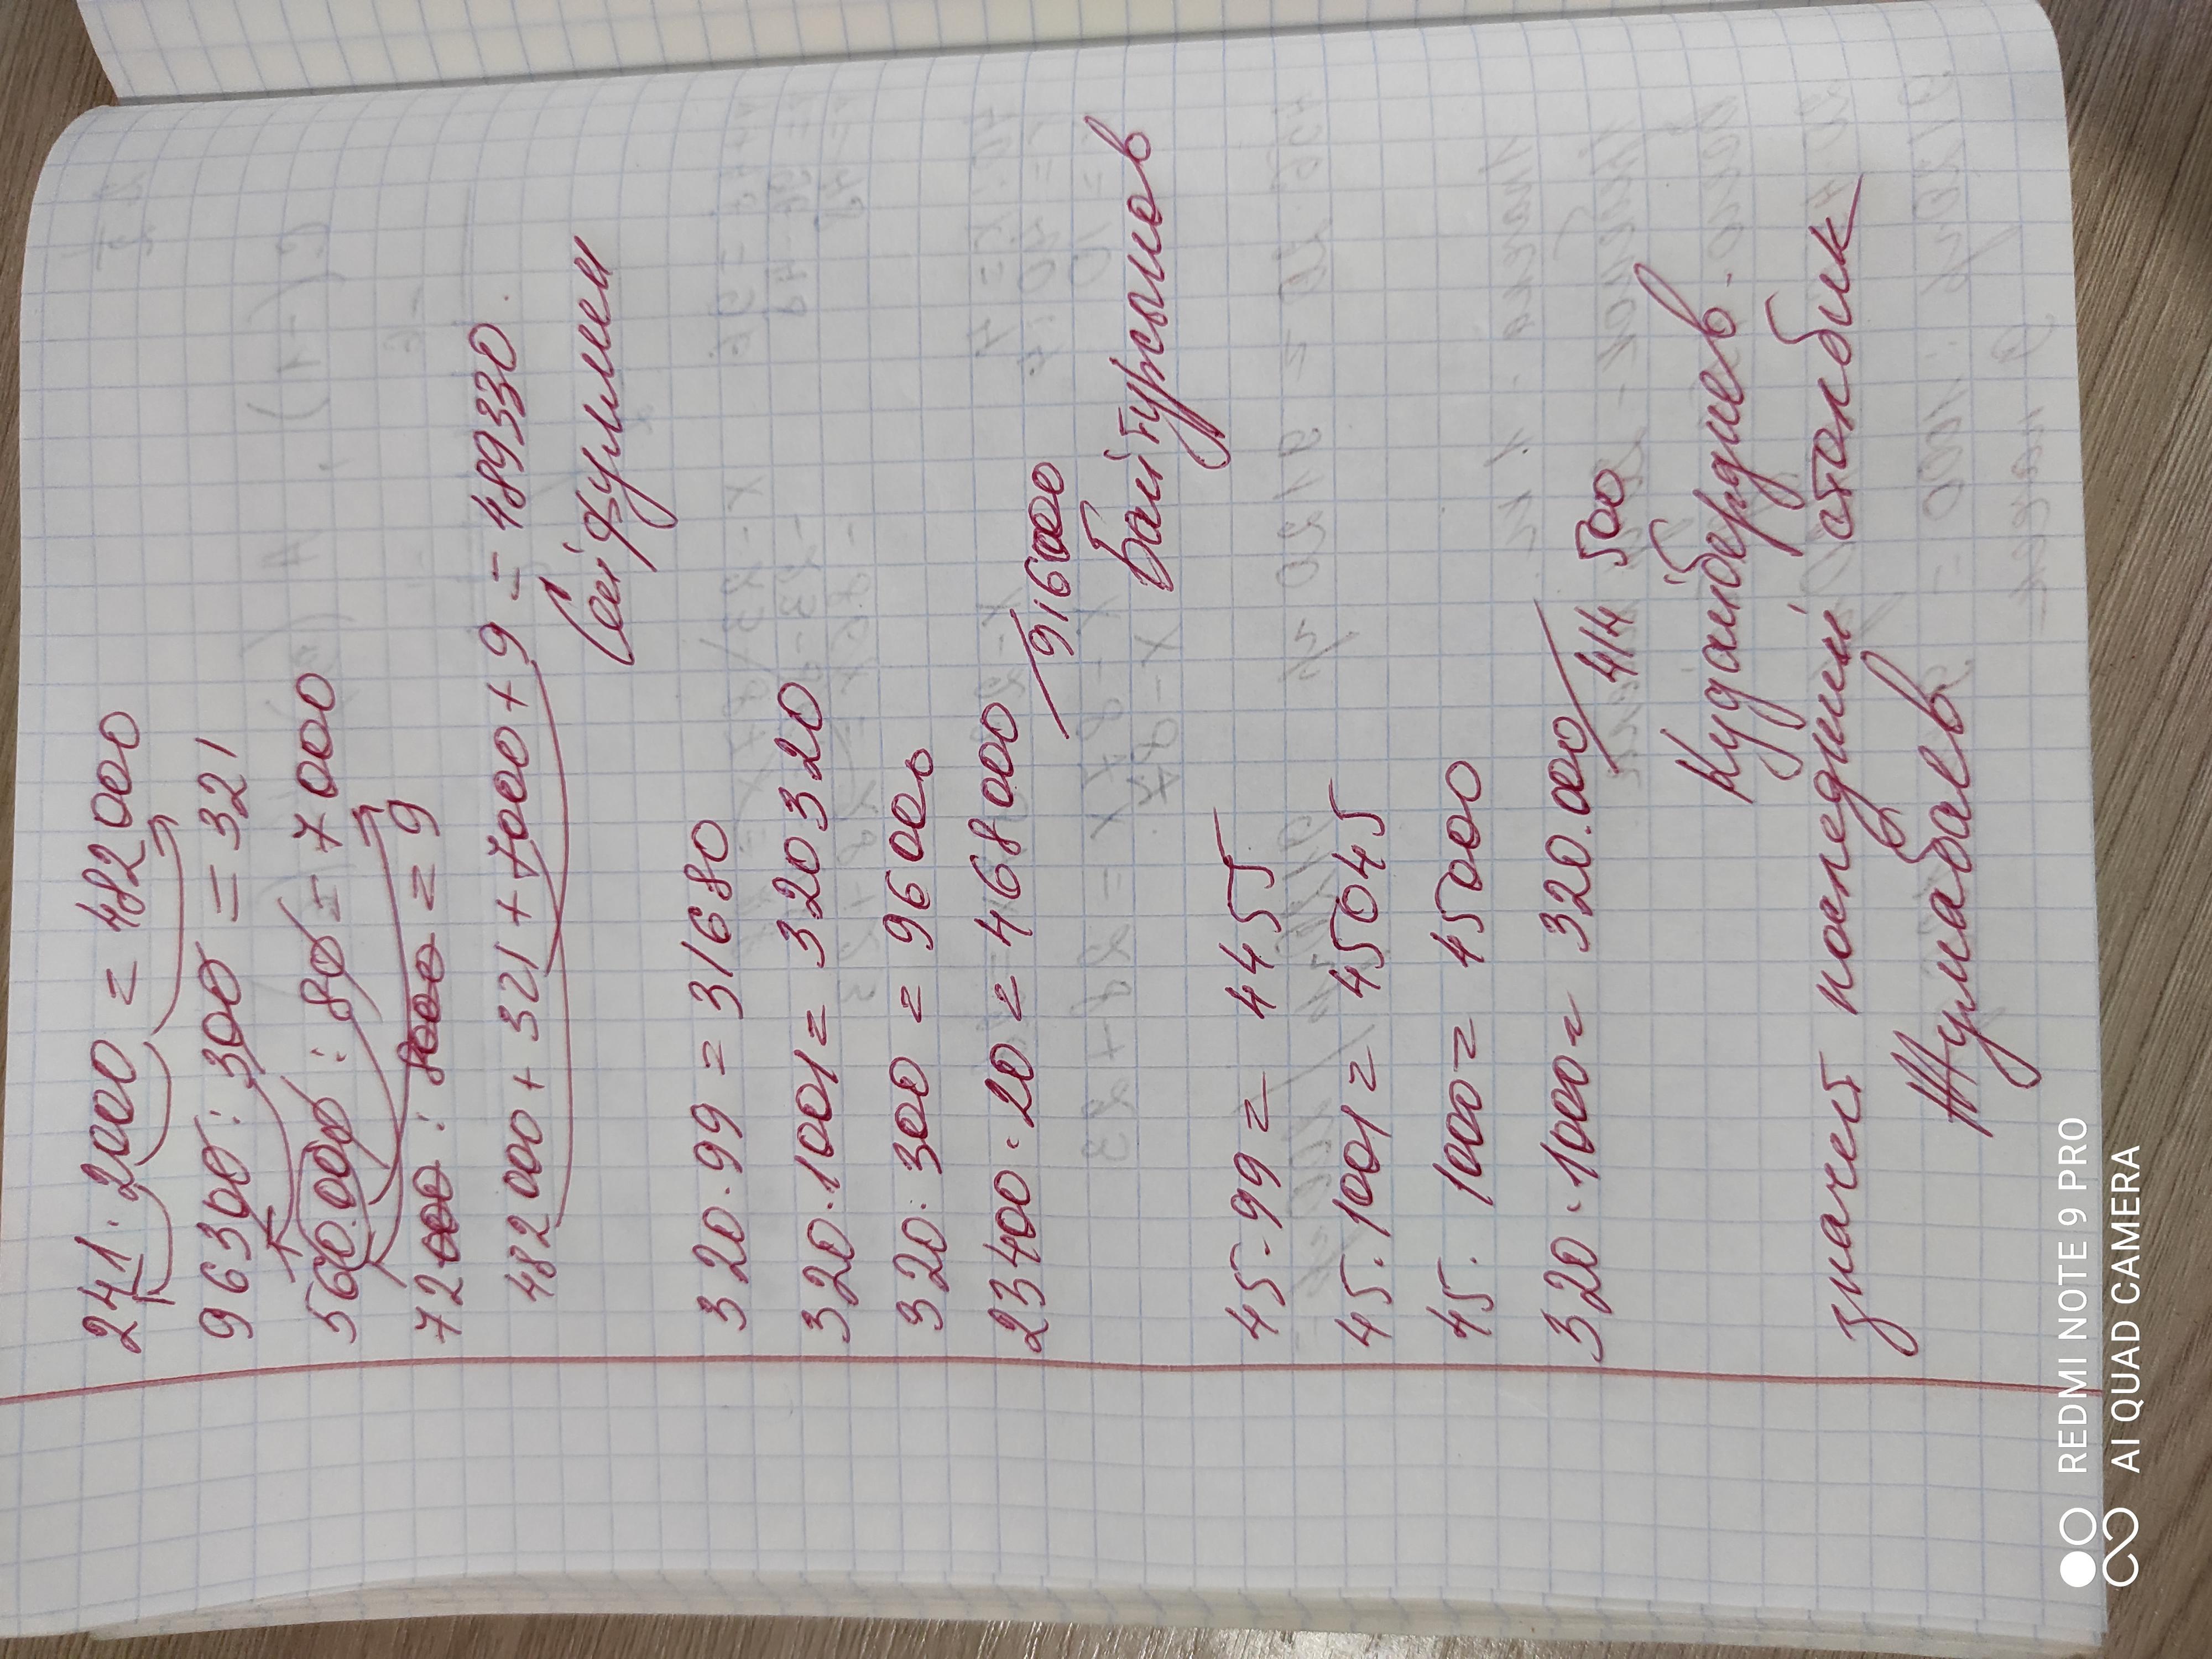 241·2000 = 482000
96300 : 300 = 321
560.000 : 80 = 7000
72000 : 8000 = 9
482000 + 321 + 7000 + 9 = 489330
Сейфуллин
320·99 = 31680
320·1001 = 320320
320·300 = 96000
23400·20 = 468000
916000
Байтурсынов
45·99 = 4455
45·1001 = 45045
45·1000 = 45000
320·1000 = 320.000
414500
Кудайбердиев.
значит последний столбик
Жумабаев
REDMI NOTE 9 PRO
AI QUAD CAMERA